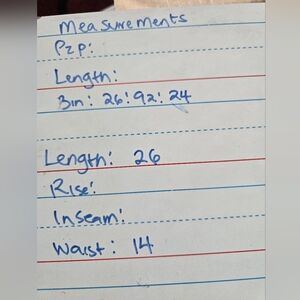 Measurements
P2P:
Length:
Bin: 26: 92: 24
Length: 26
Rise:
Inseam:
Waist: 14